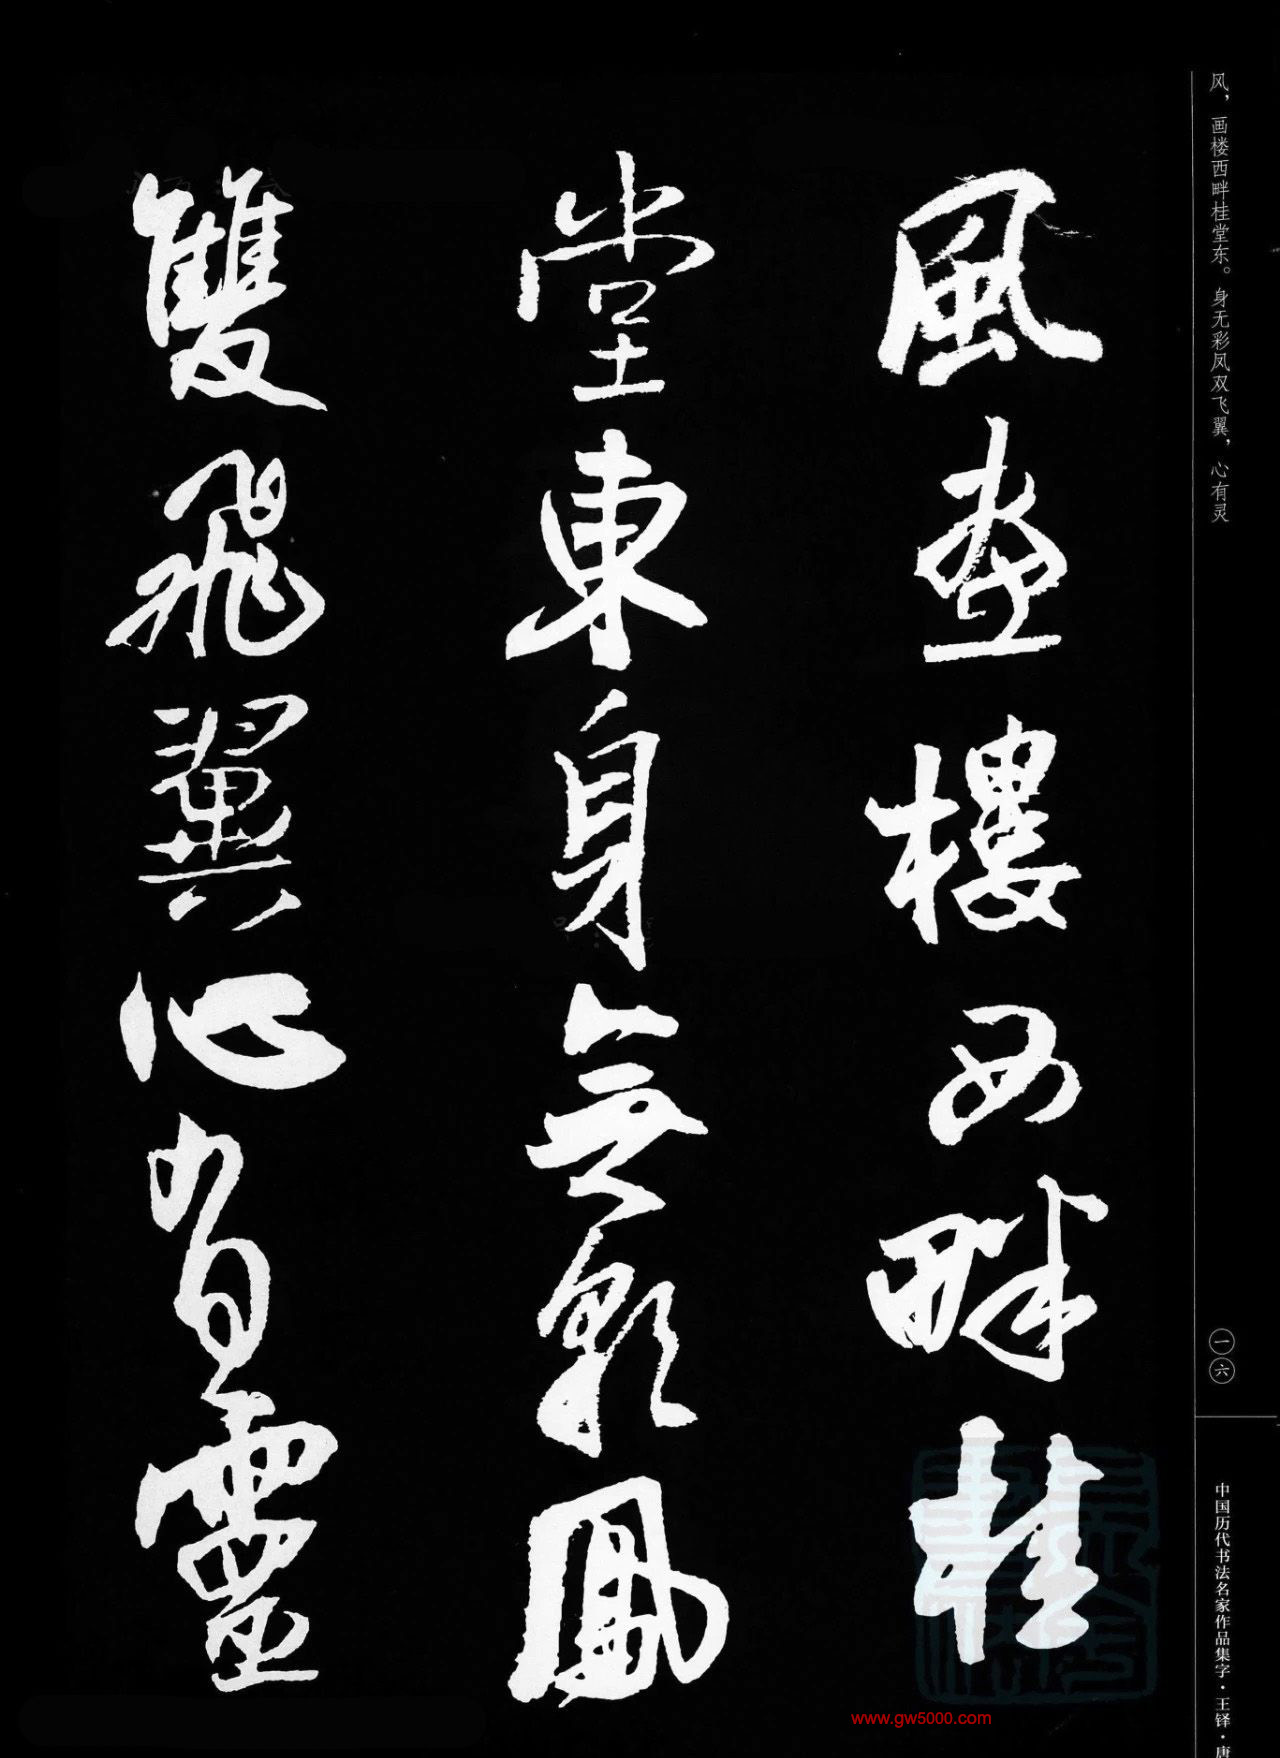 风，画楼西畔桂堂东。身无彩凤双飞翼，心有灵
風畫樓西畔桂
堂東身無彩鳳
雙飛翼心有靈
一六
中国历代书法名家作品集字·王铎·唐
www.gw5000.com